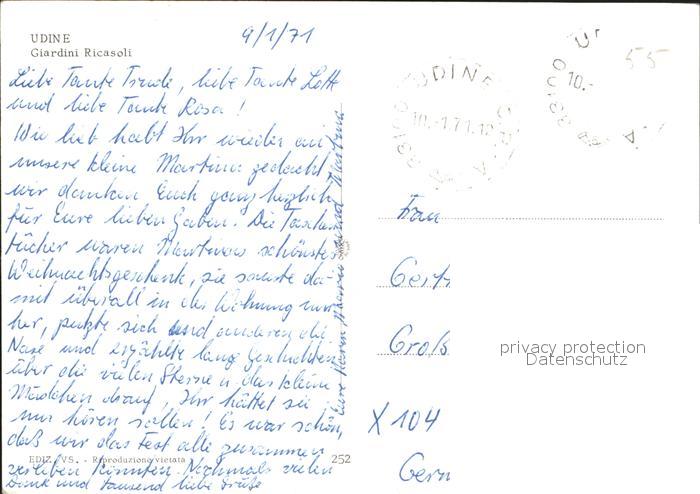 UDINE
Giardini Ricasoli
9/1/71
Liebe Tante Trude, liebe Tante Lotte
und liebe Tante Rosa!
Wie lieb habt Ihr wieder an
unsere kleine Martina gedacht
wir danken Euch ganz herzlich
für Eure lieben Gaben. Die Taschen
tücher waren Martinas schönstes
Weihnachtsgeschenk, sie sauste da-
mit überall in der Wohnung um-
her, putzte sich und anderen die
Nase und erzählte lange Geschichten
über die vielen Sterne u. das kleine
Mädchen drauf, Ihr hättet sie
nur hören sollen! Es war schön,
daß wir das Fest alle zusammen
verleben konnten. Nochmals vielen
Dank und tausend liebe Grüße
Eure und Martina
EDIZ. VS. - Riproduzione vietata
252
UDINE
10.-1.71.18
10.-
55
Frau
Gert
Groß
X 104
Gern
privacy protection
Datenschutz